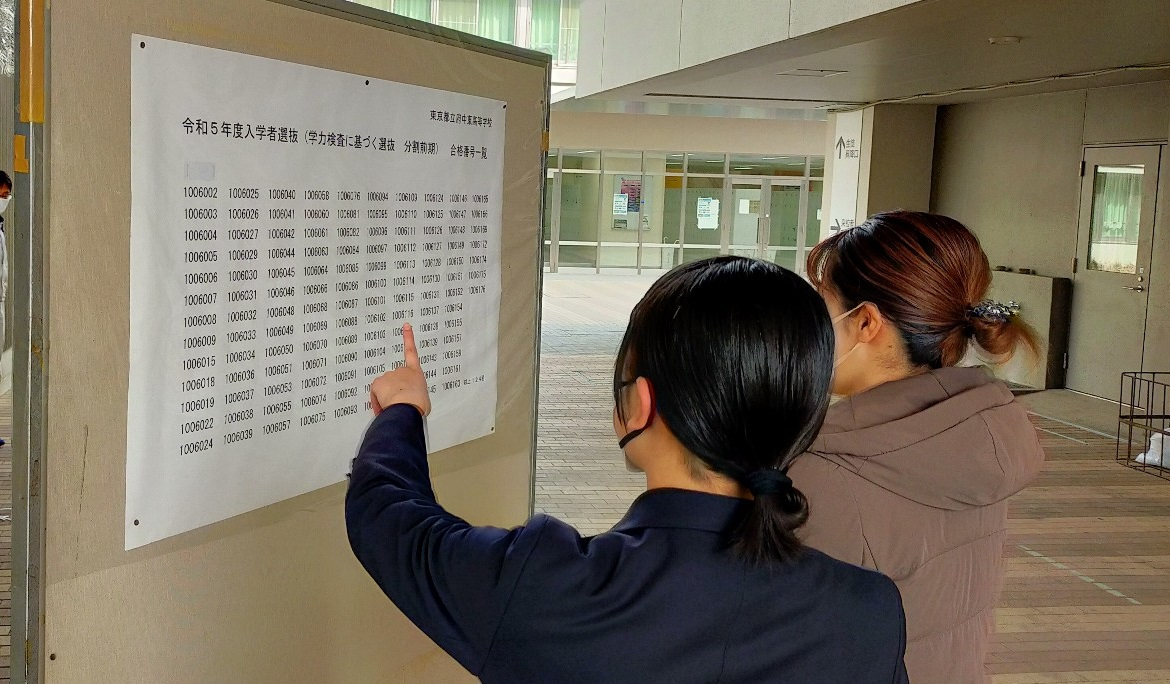 東京都立府中東高等学校
令和5年度入学者選抜（学力検査に基づく選抜　分割前期）　合格番号一覧
1006002 1006025 1006040 1006058 1006076 1006094 1006109 1006124 1006146 1006165
1006003 1006026 1006041 1006060 1006081 1006095 1006110 1006125 1006147 1006166
1006004 1006027 1006042 1006061 1006082 1006096 1006111 1006126 1006148 1006168
1006005 1006029 1006044 1006063 1006084 1006097 1006112 1006127 1006149 1006172
1006006 1006030 1006045 1006064 1006085 1006099 1006113 1006128 1006150 1006174
1006007 1006031 1006046 1006066 1006086 1006100 1006114 1006130 1006151 1006175
1006008 1006032 1006048 1006068 1006087 1006101 1006115 1006131 1006152 1006176
1006009 1006033 1006049 1006069 1006088 1006102 1006116 1006137 1006154
1006015 1006034 1006050 1006070 1006089 1006103 1006138 1006155
1006018 1006036 1006051 1006071 1006090 1006104 1006139 1006157
1006019 1006037 1006053 1006072 1006091 1006105 1006142 1006159
1006022 1006038 1006055 1006074 1006092 1006161
1006024 1006039 1006057 1006075 1006093 1006163